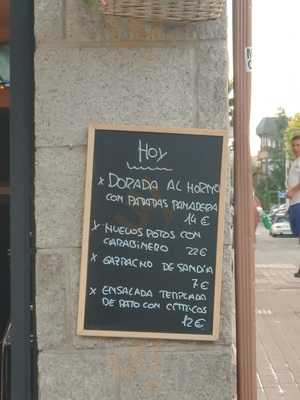 HOY
x DORADA AL HORNO
CON PATATAS PANADERA
14 €
x HUEVOS ROTOS CON
CARABINERO 22 €
x GAZPACHO DE SANDÍA
7 €
x ENSALADA TEMPLADA
DE PATO CON CÍTRICOS
12 €